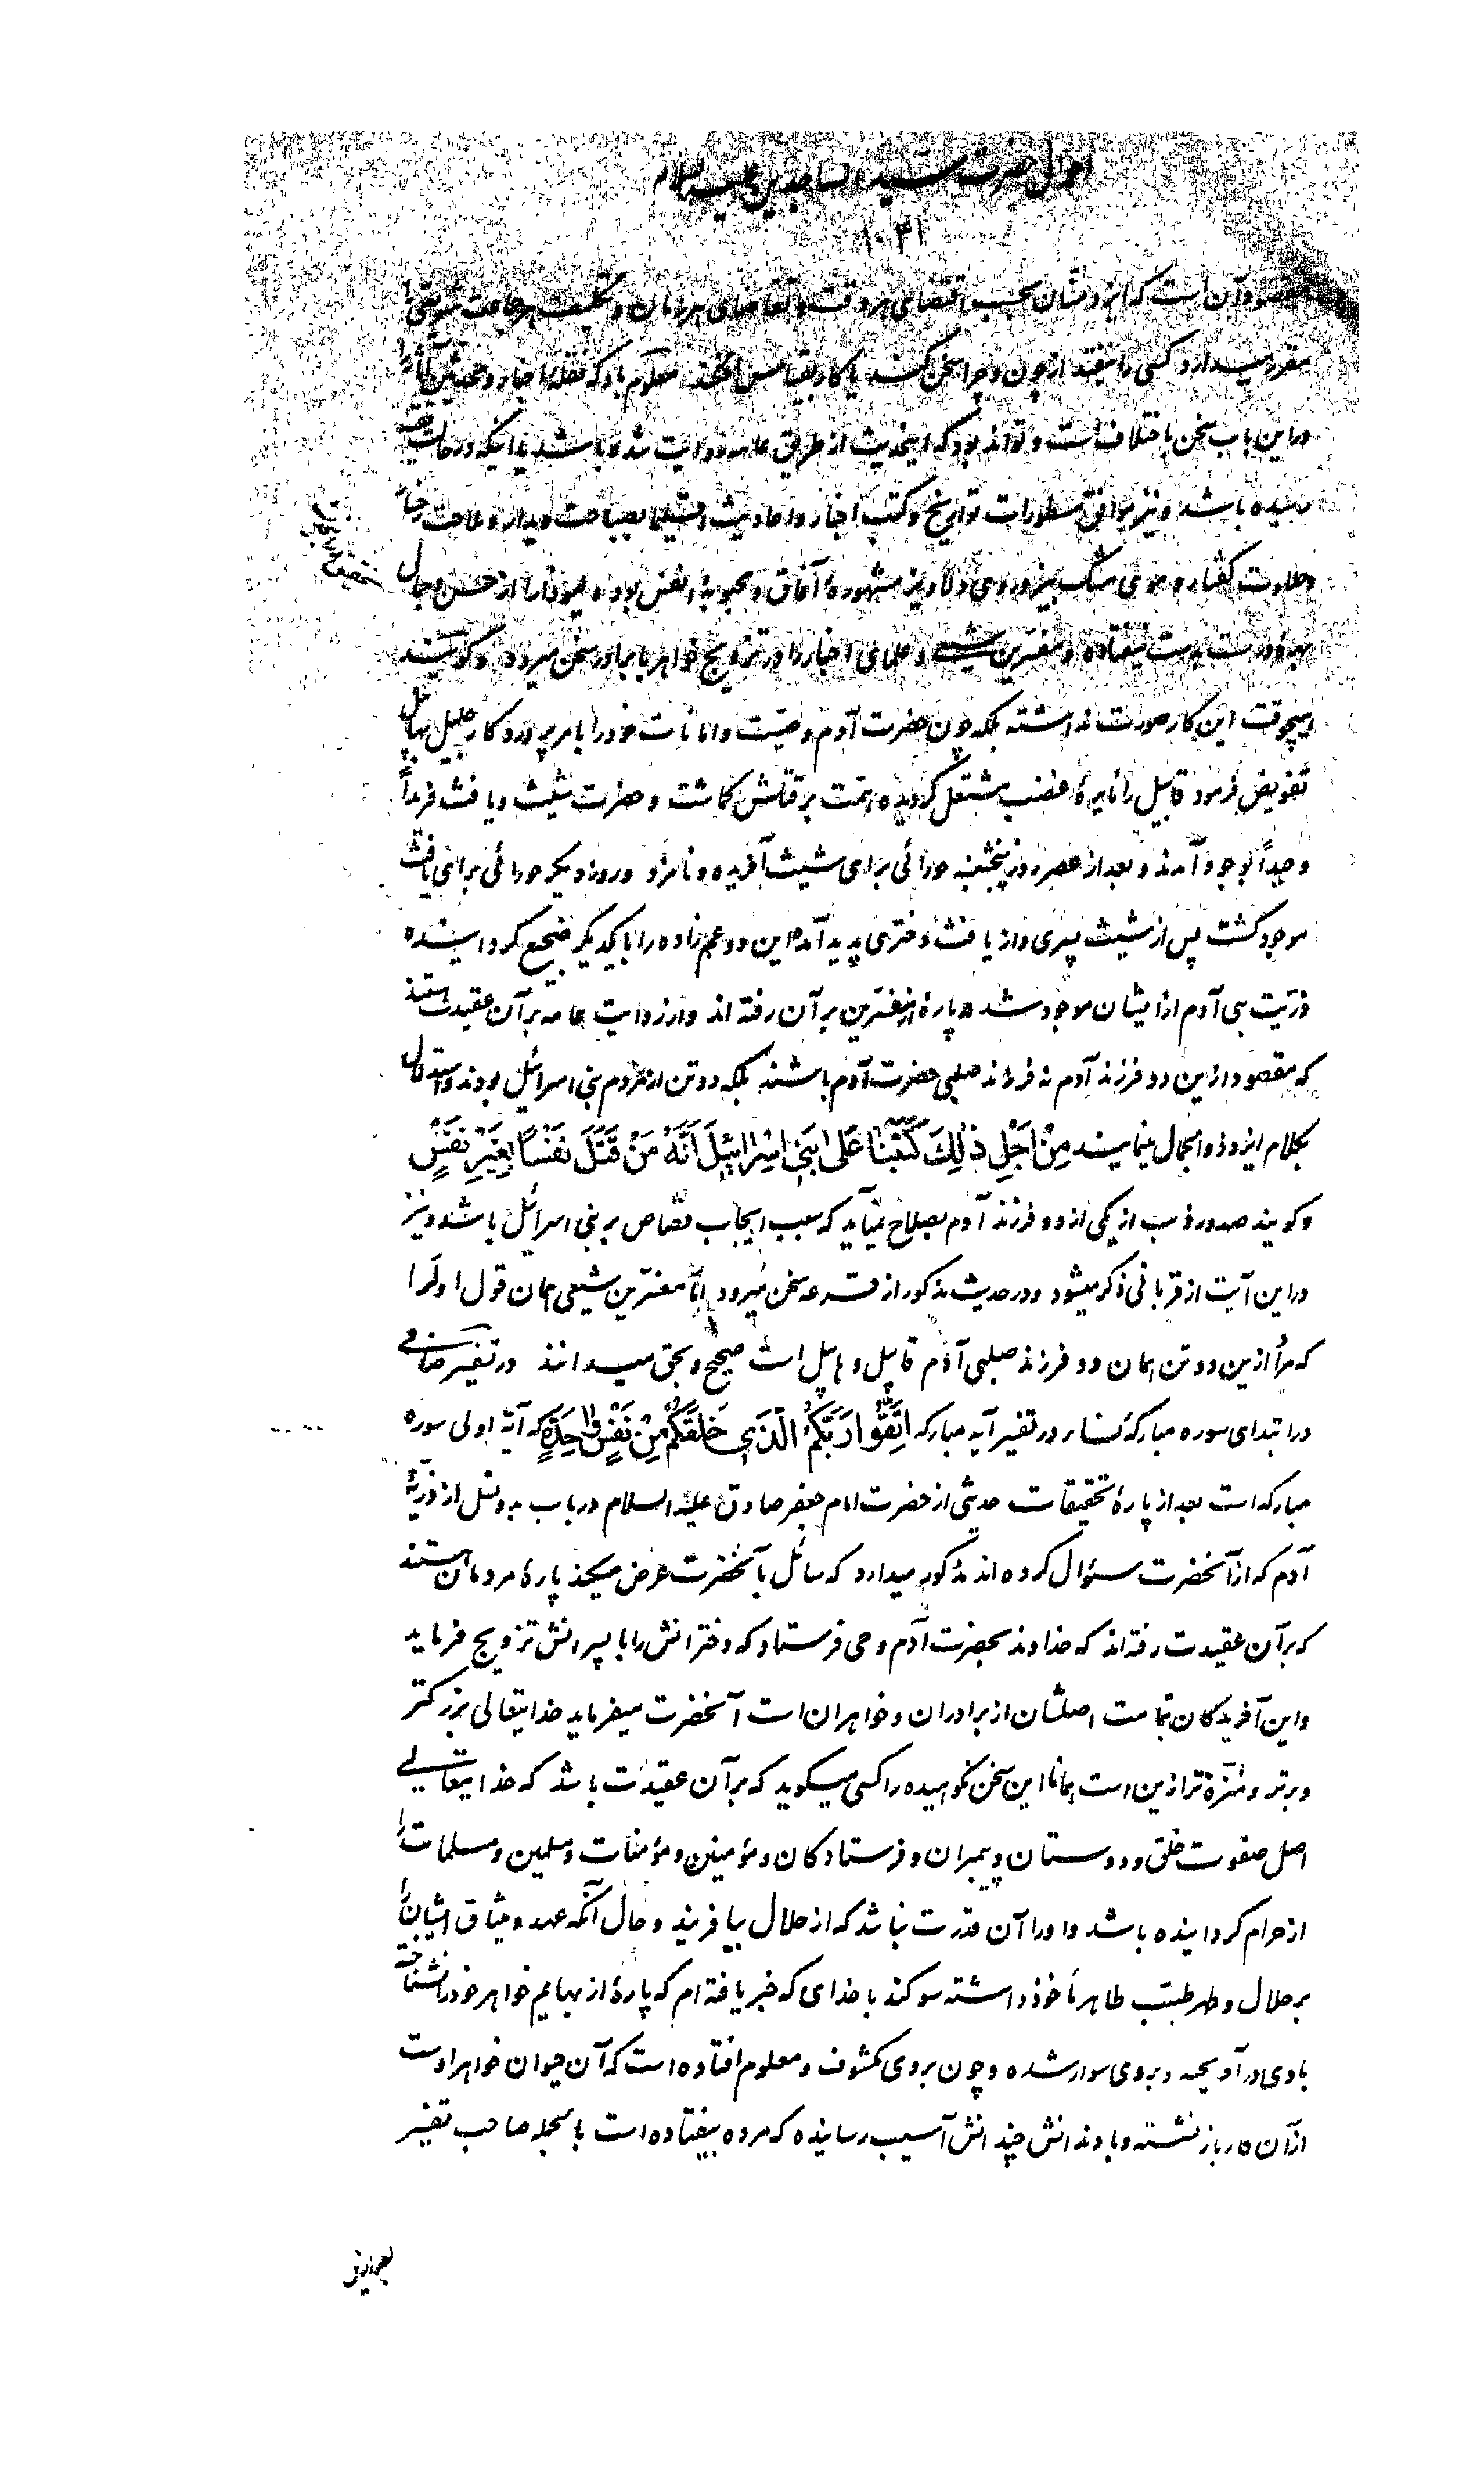 احوال حضرت سید الساجدین علیه السلام
۱۰۳۱
مقصود آن است که ایزد منان بحسب اقتضای هر وقت و تقاضای هر زمان و تکلیف هر جماعت شریعتی
مقرر میدارد و کسی را نیفتد از چون و چرا سخن کند یا کار بقیاس افکند معلوم باد که نقله اخبار و محدثین آثار را
در این باب سخن باختلاف است و تواند بود که اینحدیث از طریق عامه روایت شده باشد یا اینکه در حالت تقیه
رسیده باشد و نیز موافق مسطورات تواریخ و کتب اخبار و احادیث اقلیما بصباحت دیدار و ملاحت رخسار
و حلاوت گفتار و موی مشک بیز و روی دلاویز مشهورهٔ آفاق و محبوبهٔ انفس بوده و لیوذا را از حسن و جمال
بهرهٔ درست بدست نیفتاده و مفسرین شیعی و علمای اخبار را در تزویج خواهر با برادر سخن میرود و گویند
هیچوقت این کار صورت نداشته بلکه چون حضرت آدم وصیت و امانات خود را بامر پروردگار جلیل بهابیل
تفویض فرمود قابیل را نایرهٔ غضب مشتعل گردیده همت بر قتلش گماشت و حضرت شیث و یافث فرداً
وحیداً بوجود آمدند و بعد از عصر روز پنجشنبه حورائی برای شیث آفریده و نامزد و روز دیگر حورائی برای یافث
موجود گشت پس از شیث پسری و از یافث دختری پدید آمد این دو عم زاده را با یکدیگر ضجیع گردانیده
ذریت بنی آدم از ایشان موجود شد پارهٔ از مفسرین بر آن رفته اند و از روایت عامه بر آن عقیدت هستند
که مقصود ازین دو فرزند آدم نه فرزند صلبی حضرت آدم باشند بلکه دو تن از مردم بنی اسرائیل بودند و استدلال
بکلام ایزد ذوالجمال مینمایند مِنْ اَجْلِ ذٰلِكَ كَتَبْنا عَلى بَنى اِسْرائيلَ اَنَّهُ مَنْ قَتَلَ نَفْسًا بِغَيْرِ نَفْسٍ
و گویند صدور ذنب از یکی از دو فرزند آدم بصلاح نمیآید که سبب ایجاب قصاص بر بنی اسرائیل باشد و نیز
در این آیت از قربانی ذکر میشود و در حدیث مذکور از قرعه سخن میرود امّا مفسّرین شیعی همان قول اوّل را
که مراد ازین دو تن همان دو فرزند صلبی آدم قابیل و هابیل است صحیح و بحق میدانند در تفسیر صافی
در ابتدای سوره مبارکهٔ نساء در تفسیر آیه مبارکه اِتَّقُوا رَبَّكُمُ الَّذى خَلَقَكُمْ مِنْ نَفْسٍ واحِدَةٍ که آیهٔ اولی سوره
مبارکه است بعد از پارهٔ تحقیقات حدیثی از حضرت امام جعفر صادق علیه السلام در باب بدو نسل از ذریّهٔ
آدم که از آنحضرت سؤال کرده اند مذکور میدارد که سائل بآنحضرت عرض میکند پارهٔ مردمان هستند
که بر آن عقیدت رفته اند که خداوند بحضرت آدم وحی فرستاد که دخترانش را با پسرانش تزویج فرماید
و این آفریدگان بتمامت اصلشان از برادران و خواهران است آنحضرت میفرماید خدایتعالی بزرگتر
و برتر و منزّه تر ازین است همانا این سخن نکوهیده را کسی میگوید که بر آن عقیدت باشد که خدایتعالی
اصل صفوت خلق و دوستان و پیمبران و فرستادگان و مؤمنین و مؤمنات و مسلمین و مسلمات را
از حرام گردانیده باشد و او را آن قدرت نباشد که از حلال بیافریند و حال آنکه عهد و میثاق ایشان را
بر حلال و طهر طیّب طاهر مأخوذ داشته سوگند با خدای که خبر یافته ام که پارهٔ از بهایم خواهر خود را نشناخته
با وی در آویخته و بروی سوار شده و چون بروی مکشوف و معلوم افتاده است که آن حیوان خواهر اوست
از آن کار باز نشسته و با دندانش چندانش آسیب رسانیده که مرده بیفتاده است بالجمله صاحب تفسیر